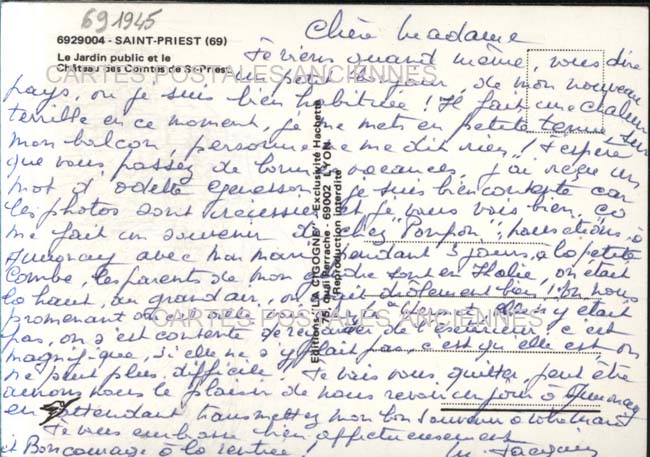 69 1945
6929004 - SAINT-PRIEST (69)
Le Jardin public et le
Château des Comtes de St-Priest
CARTES POSTALES ANCIENNES
Chère Madame
Je viens quand même, vous dire
un petit bonjour, de mon nouveau
pays, où je suis bien habituée ! Il fait une chaleur
terrible en ce moment, je me mets en petite tenue sur
mon balcon, personne ne me dit rien ! J'espère
que vous passez de bonnes vacances, j'ai reçu un
mot d'odette je suis bien contente car
les photos sont réussies et je vous vois bien, ça
me fait un souvenir de chez "Pompon", nous étions à
Annonay avec mon mari pendant 3 jours, à la petite
Combe, les parents de mon gendre sont en Italie, on était
là haut, au grand air, on était drôlement bien ! on nous
promenant on y était
pas, on s'est contenté de regarder de l'extérieur, c'est
magnifique, si elle ne s'y plait pas, c'est qu'elle est, on
ne peut plus difficile. Je vais vous quitter, peut être
aurons nous le plaisir de nous revoir un jour à Annonay
en attendant transmettez mon bon souvenir à votre mari
Je vous embrasse bien affectueusement
et Bon courage à la rentrée !
CARTES POSTALES ANCIENNES
Editions "LA CIGOGNE" - Exclusivité Hachette
75, quai Perrache - 69002 LYON
Reproduction Interdite